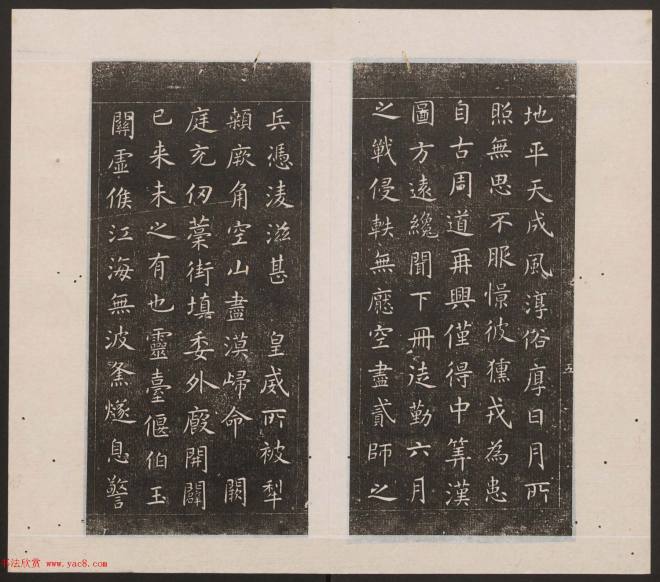 地平天成風淳俗厚日月所
照無思不服憬彼獯戎為患
自古周道再興僅得中筭漢
圖方遠纔聞下冊徒勤六月
之戰侵軼無廖空盡貳師之
兵憑淩滋甚 皇威所被犁
顙厥角空山盡漠歸命 闕
庭充仞藁街填委外廄開闢
已来未之有也靈臺偃伯玉
關虛候江海無波烽燧息警
五
书法欣赏 www.yac8.com